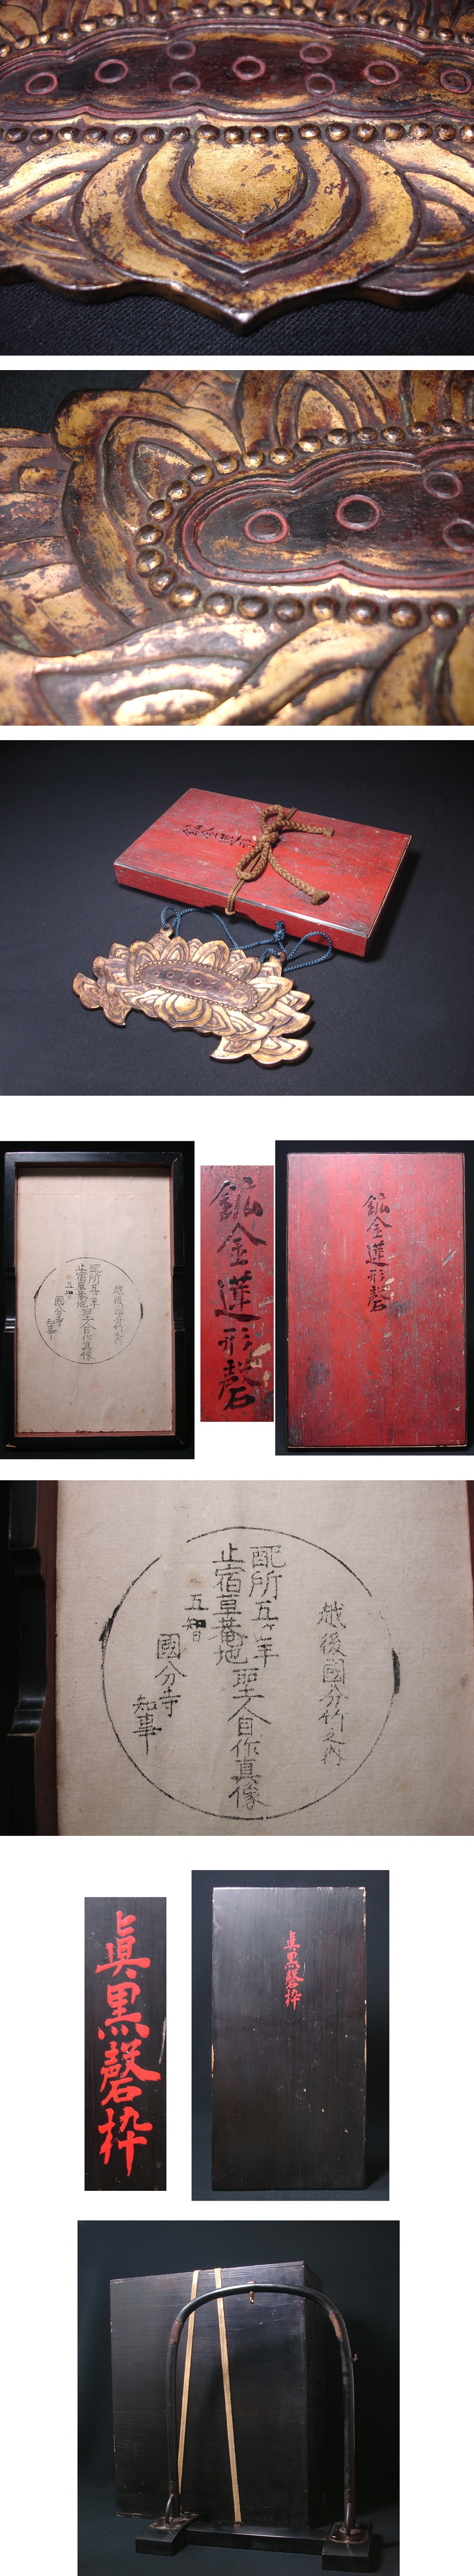 鉱金蓮形磬
越後國分竹之内
配所五ヶ年聖人自作真像
止宿草菴地
五智
國分寺
知事
鉱金蓮形磬
鉱金蓮形磬
越後國分竹之内
配所五ヶ年
聖人自作真像
止宿草菴地
五智
國分寺
知事
眞黒磬枠
眞黒磬枠